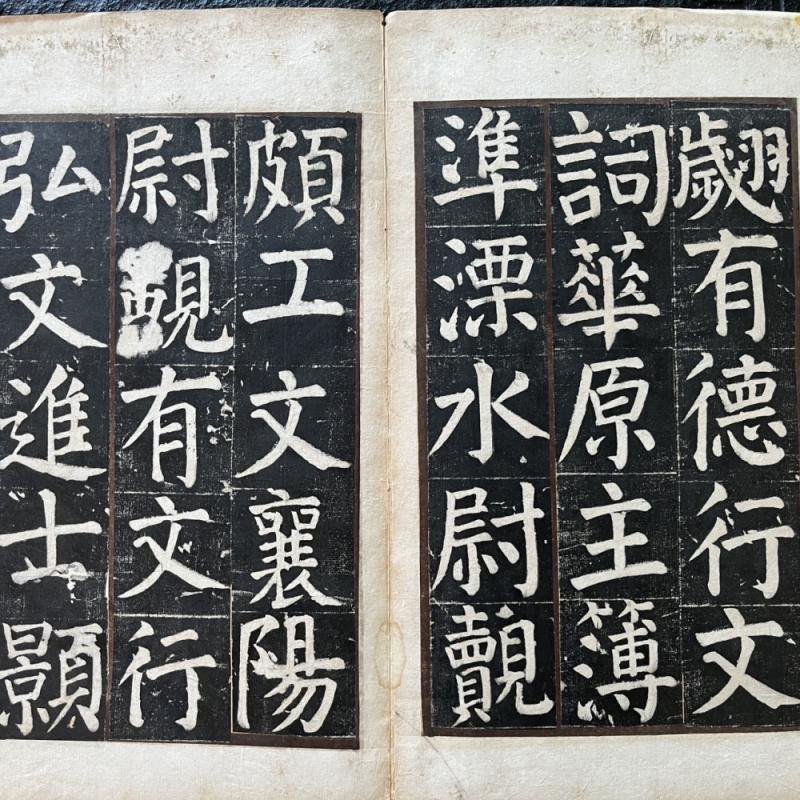 翽有德行文
詞華原主簿
準溧水尉覿
頗工文襄陽
尉有文行
弘文進士顥